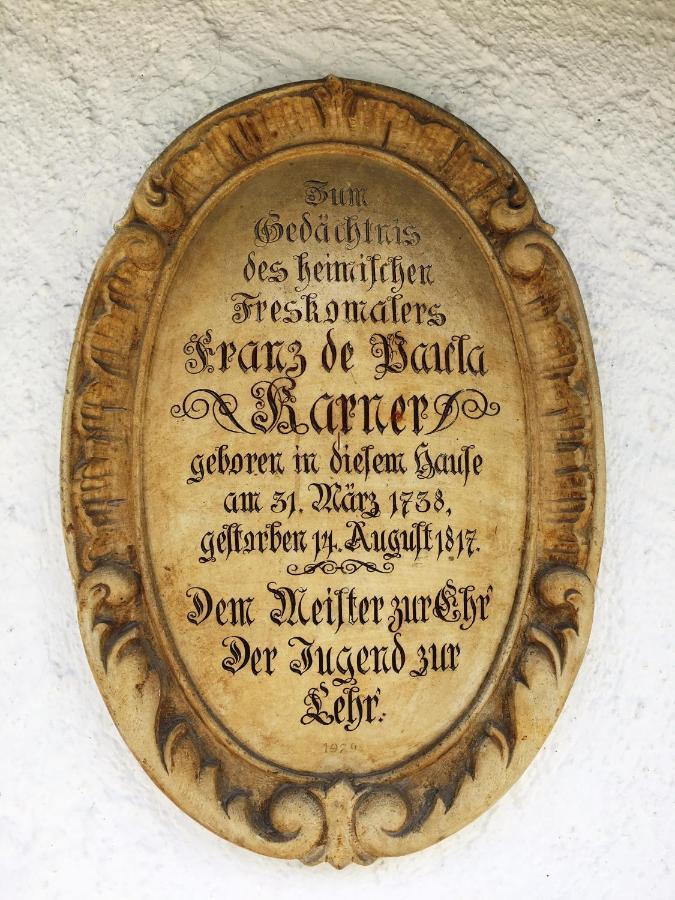 Zum
Gedächtnis
des heimischen
Freskomalers
Franz de Paula
Karner
geboren in diesem Hause
am 31. März 1738,
gestorben 14. August 1817.
Dem Meister zur Ehr
Der Jugend zur
Lehr.
1929